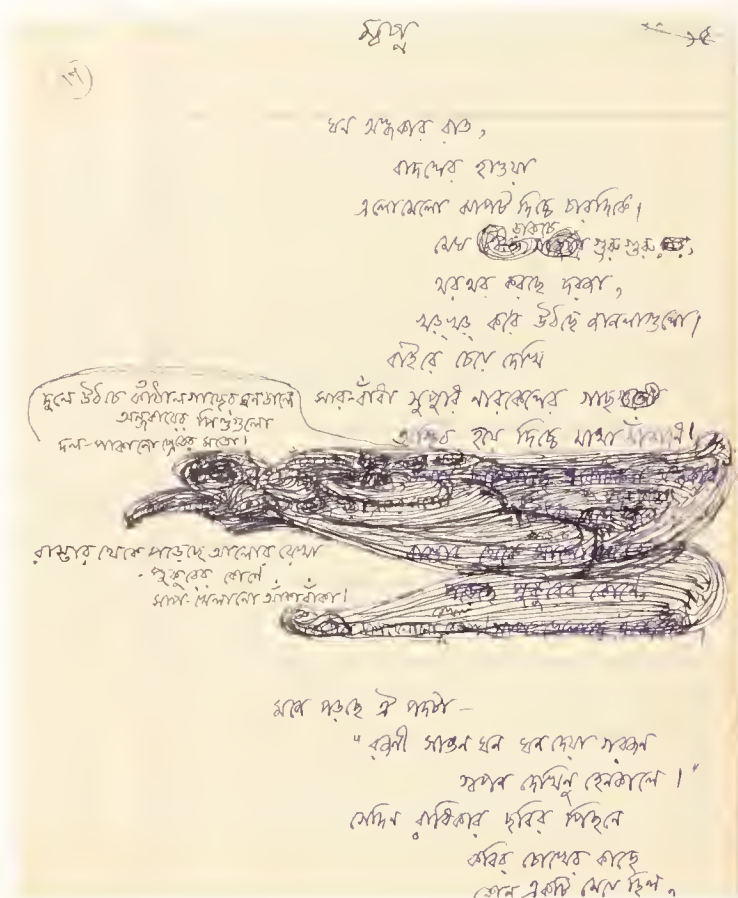 স্বপ্ন
ঘন অন্ধকার রাত,
বাদলের হাওয়া
এলোমেলো ঝাপট দিচ্ছে চারদিকে।
মেঘ ডাকচে গুরু গুরু,
থরথর করছে দরজা,
খড়খড় করে উঠছে জানলাগুলো।
বাইরে চেয়ে দেখি
সারবাঁধা সুপুরি নারকেলের গাছ
অস্থির হয়ে দিচ্ছে মাথা ঝাঁকানি।
দুলে উঠচে কাঁঠাল গাছের ঘন ডালে
অন্ধকারের পিণ্ডগুলো
দল-পাকানো প্রেতের মতো।
রাস্তার থেকে পড়েছে আলোর রেখা
পুকুরের কোণে
সাপ-খেলানো আঁকাবাঁকা।
মনে পড়ছে ঐ পদটা—
"রজনী সাঙন ঘন ঘন দেয়া গরজন
স্বপন দেখিনু হেনকালে।"
সেদিন রাধিকার ছবির পিছনে
কবির চোখের কাছে
কোন একটি মেয়ে ছিল,